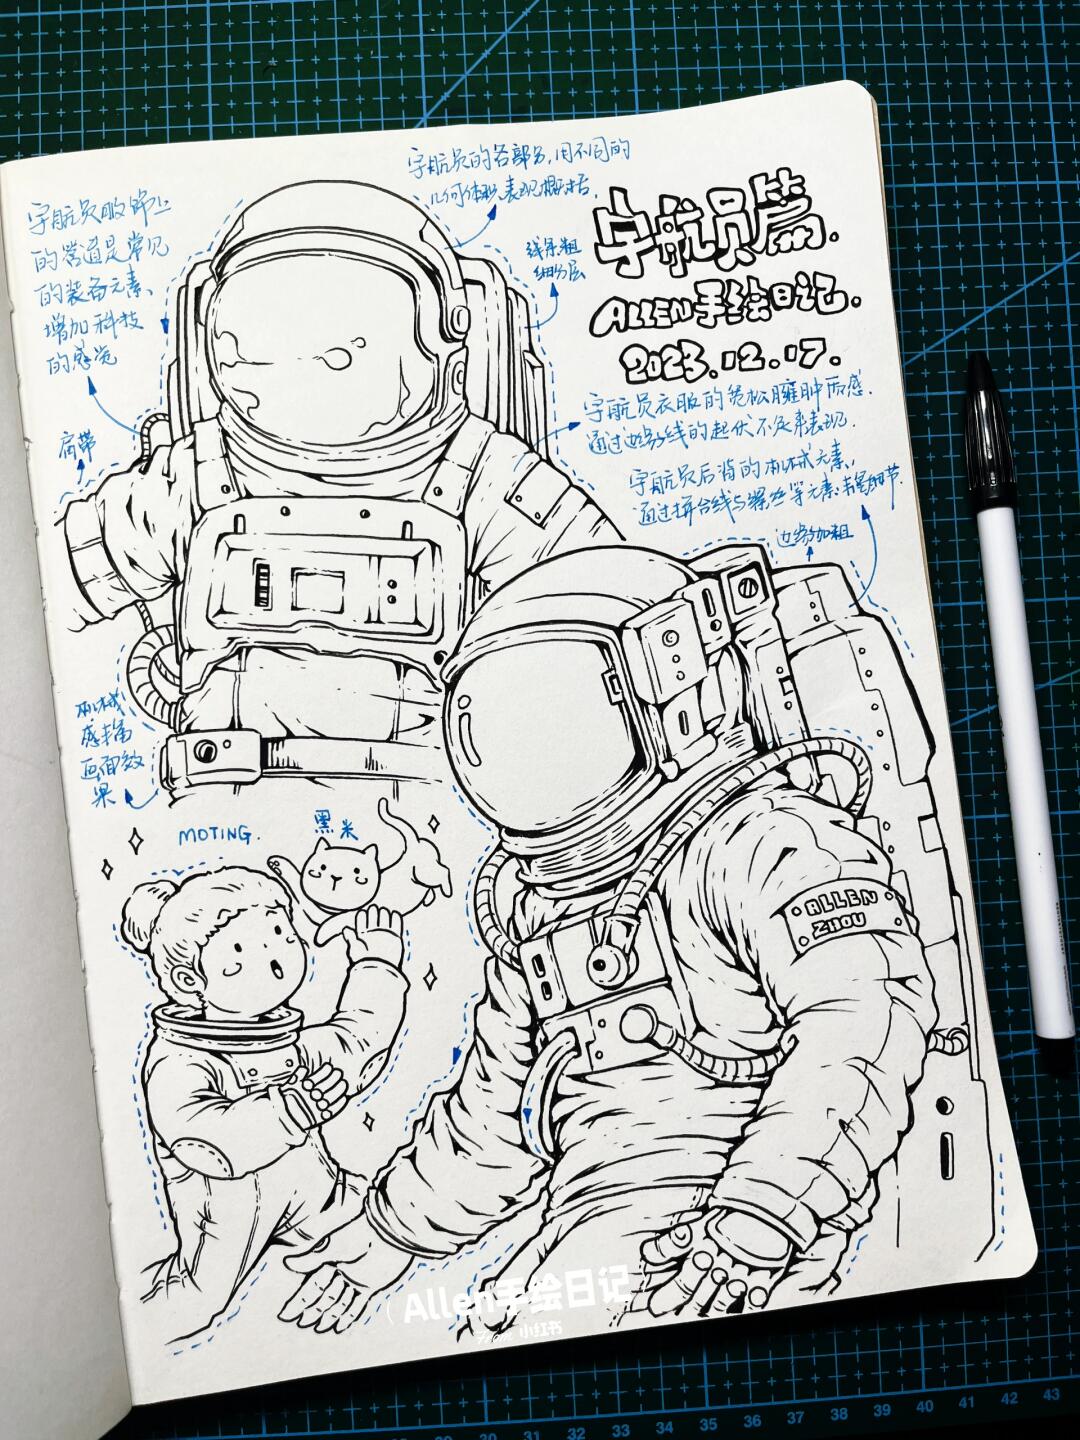 宇航员的各部分,用不同的
几何体块表现概括.
宇航员服饰上
的管道是常见
的装备元素、
增加科技
的感觉
宇航员篇.
线条粗
细分层
ALLEN手绘日记.
2023.12.17.
宇航员衣服的宽松臃肿质感.
通过边缘线的起伏不定来表现.
肩带
宇航员后背的机械元素、
通过拼合线与螺丝等元素丰富细节.
边缘加粗
机械
感丰富
画面效
果
MOTING.
黑米
ALLEN
ZHOU
Allen手绘日记
From 小红书
31 32 33 34 35 36 37 38 39 40 41 42 43